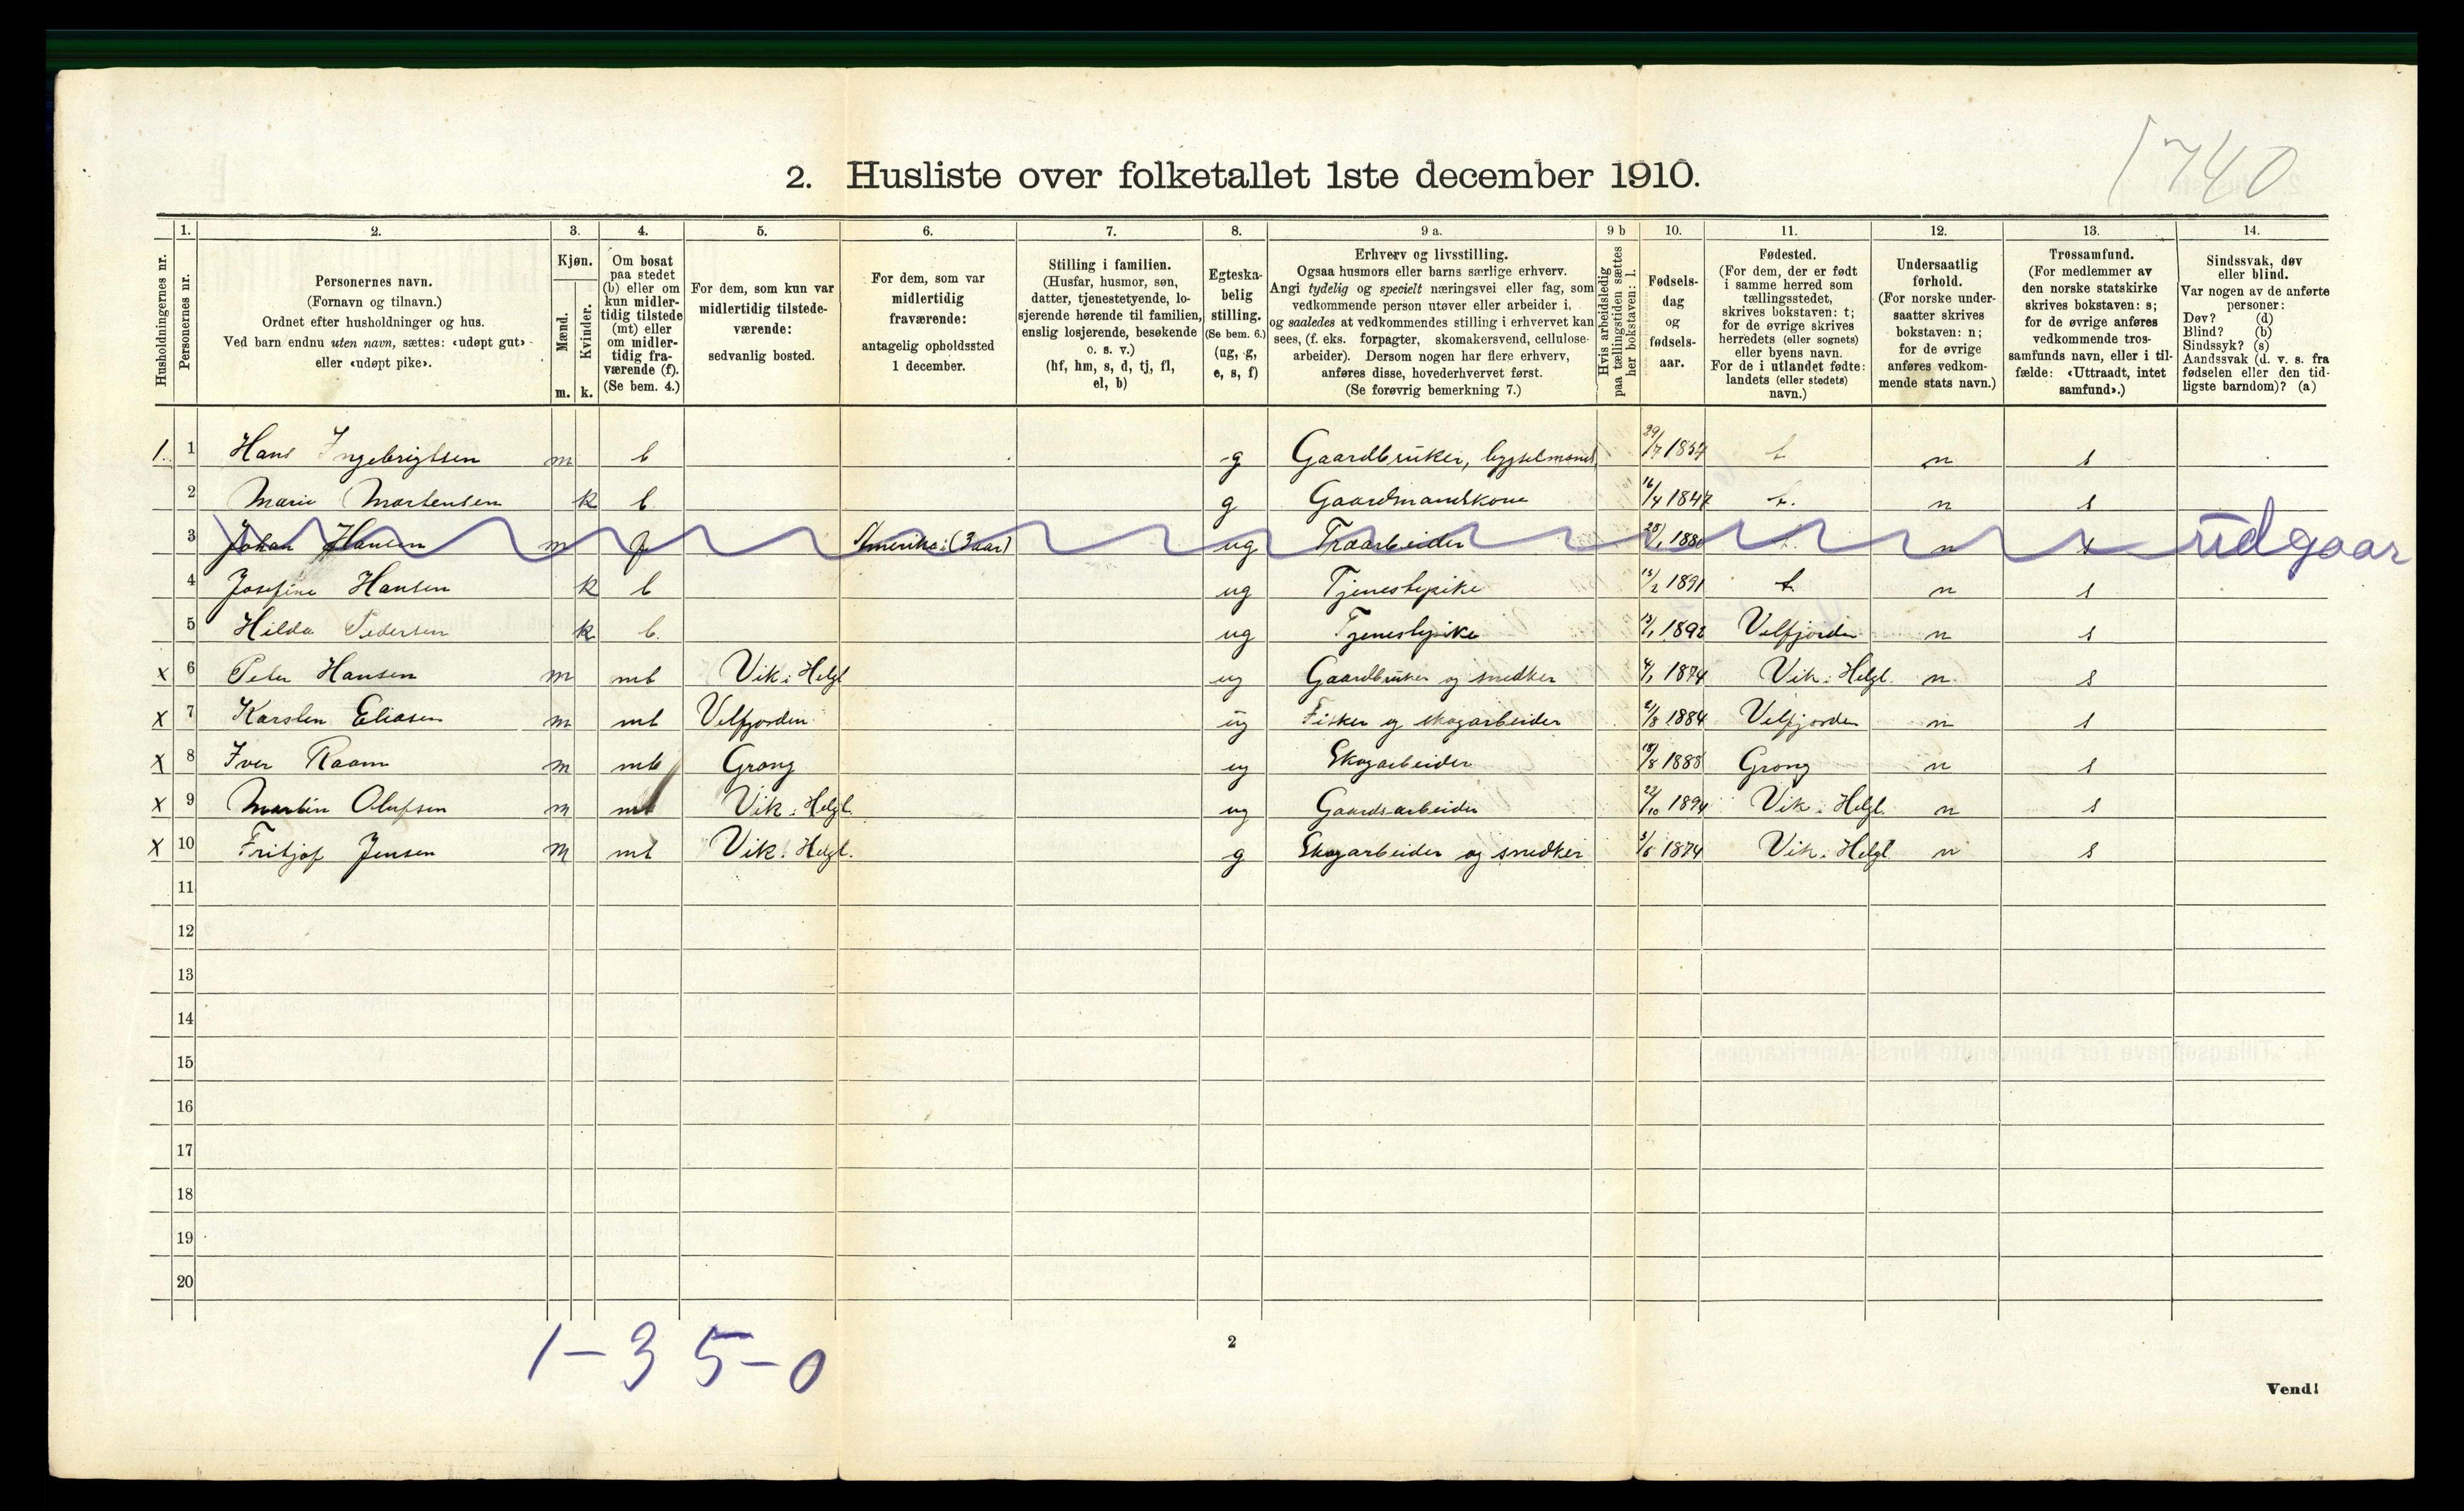 1740
2. Husliste over folketallet 1ste december 1910.
1. 2. 3. 4. 5. 6. 7. 8. 9 a. 9 b 10. 11. 12. 13. 14.
Husholdningernes nr.
Personernes nr.
Personernes navn.
(Fornavn og tilnavn.)
Ordnet efter husholdninger og hus.
Ved barn endnu uten navn, sættes: «udøpt gut»
eller «udøpt pike».
Kjøn.
Mænd.
Kvinder.
m. k.
Om bosat
paa stedet
(b) eller om
kun midler-
tidig tilstede
(mt) eller
om midler-
tidig fra-
værende (f).
(Se bem. 4.)
For dem, som kun var
midlertidig tilstede-
værende:
sedvanlig bosted.
For dem, som var
midlertidig
fraværende:
antagelig opholdssted
1 december.
Stilling i familien.
(Husfar, husmor, søn,
datter, tjenestetyende, lo-
sjerende hørende til familien,
enslig losjerende, besøkende
o. s. v.)
(hf, hm, s, d, tj, fl,
el, b)
Egteska-
belig
stilling.
(Se bem. 6.)
(ug, g,
e, s, f)
Erhverv og livsstilling.
Ogsaa husmors eller barns særlige erhverv.
Angi tydelig og specielt næringsvei eller fag, som
vedkommende person utøver eller arbeider i,
og saaledes at vedkommendes stilling i erhvervet kan
sees, (f. eks. forpagter, skomakersvend, cellulose-
arbeider). Dersom nogen har flere erhverv,
anføres disse, hovederhvervet først.
(Se forøvrig bemerkning 7.)
Hvis arbeidsledig
paa tællingstiden sættes
her bokstaven: l.
Fødsels-
dag
og
fødsels-
aar.
Fødested.
(For dem, der er født
i samme herred som
tællingsstedet,
skrives bokstaven: t;
for de øvrige skrives
herredets (eller sognets)
eller byens navn.
For de i utlandet fødte:
landets (eller stedets)
navn.)
Undersaatlig
forhold.
(For norske under-
saatter skrives
bokstaven: n;
for de øvrige
anføres vedkom-
mende stats navn.)
Trossamfund.
(For medlemmer av
den norske statskirke
skrives bokstaven: s;
for de øvrige anføres
vedkommende tros-
samfunds navn, eller i til-
fælde: «Uttraadt, intet
samfund».)
Sindssvak, døv
eller blind.
Var nogen av de anførte
personer:
Døv? (d)
Blind? (b)
Sindssyk? (s)
Aandssvak (d. v. s. fra
fødselen eller den tid-
ligste barndom)? (a)
1. 1 Hans Ingebrigtsen m b g Gaardbruker, bygselmand 29/7 t n s
2 Marie Mortensen k b g Gaardmandskone 16/4 1847 t. n s
3 Johan Hansen m f Amerika (3 aar) ug Træarbeider n s udgaar
4 Josefine Hansen k b ug Tjenestepike 1891 t n s
5 Hilda Pedersen k b. ug Tjenestepike Velfjorden n s
x 6 Peter Hansen m mt Vik i Helgl ug Gaardbruker og snedker 1874 Vik i Helgl. n. s
x 7 Karsten Eliasen m mt Velfjorden ug Fisker og skogarbeider 1884 Velfjorden n s
x 8 Iver Raam m mt Grong ug Skogarbeider 18/8 1888 Grong n s
x 9 Martin Olufsen m mt Vik i Helgl. ug Gaardsarbeider 1894 Vik i Helgl. n s
x 10 Fritjof Jensen m mt Vik i Helgl. g Skogarbeider og snedker 1874 Vik i Helgl. n s
11
12
13
14
15
16
17
18
19
20
1–3 5–0
2
Vend!